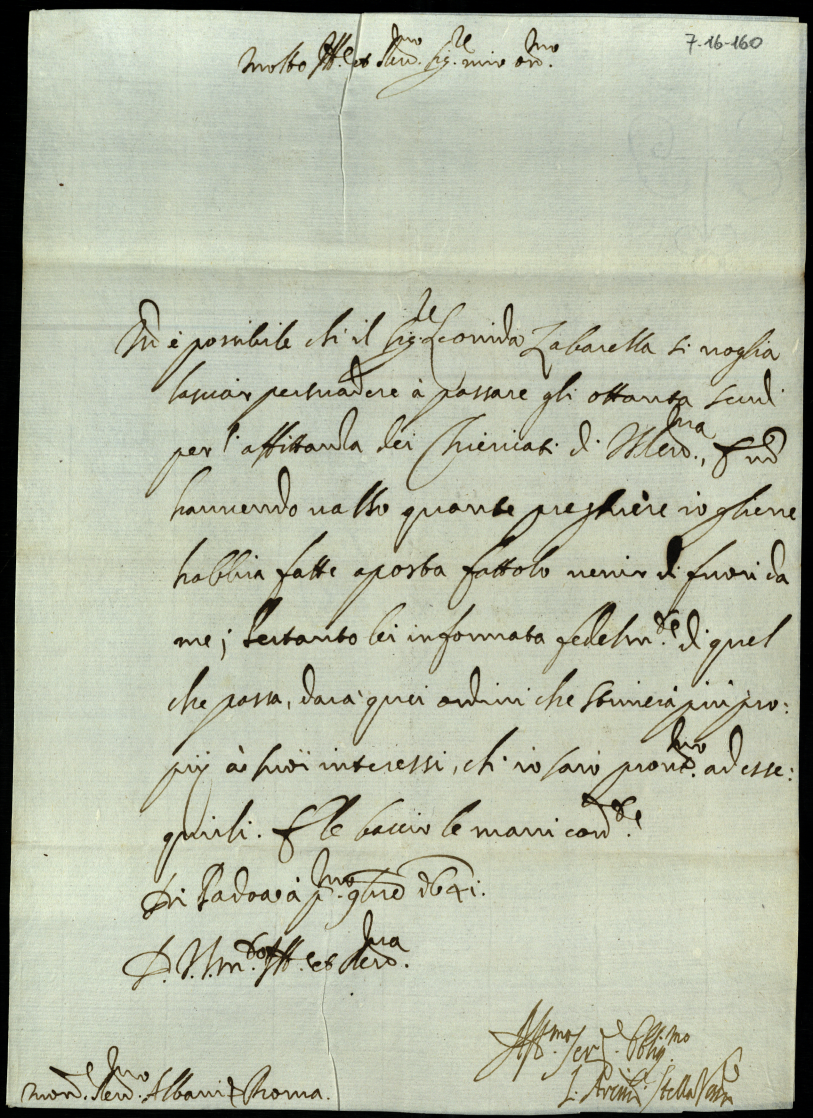 7-16-160
Molto Ill. et Rev.mo Sig.re mio oss.mo
No è possibile ch'il Sig.re Leonida Zabarella si voglia
lasciar persuadere à passare gli ottanta scudi
per l'affittanza dei Chiericati di V.S. Rev.ma, & nō
havendo valso quante preghiere io gliene
habbia fatte aposta fattolo venir di fuori da
me; Pertanto lei informata fedelm.te di quel
che passa, darà quei ordini che stimerà più pro:
prij à suoi interessi, ch'io sarò pront.mo ad esse:
quirli. & le baccio le mani cord.te
Di Padoa à p.mo 9bre 1641.
D. V.S. m.to Ill. et Rev.ma
Aff.mo Ser.re Oblig.mo
Stella
Mons.r Rev.mo Albani Roma.